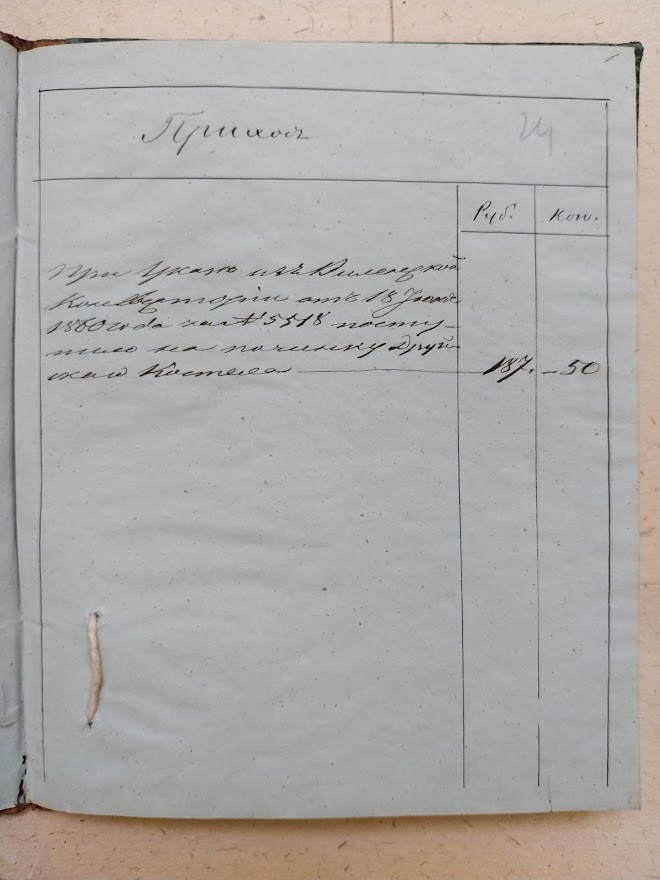 Приход
24
Руб. Коп.
При Указе изъ Виленской
Консисторіи отъ 18 Іюля
1860 года за № 5518 посту-
пило на починку Друй-
скаго Костела 187. - 50